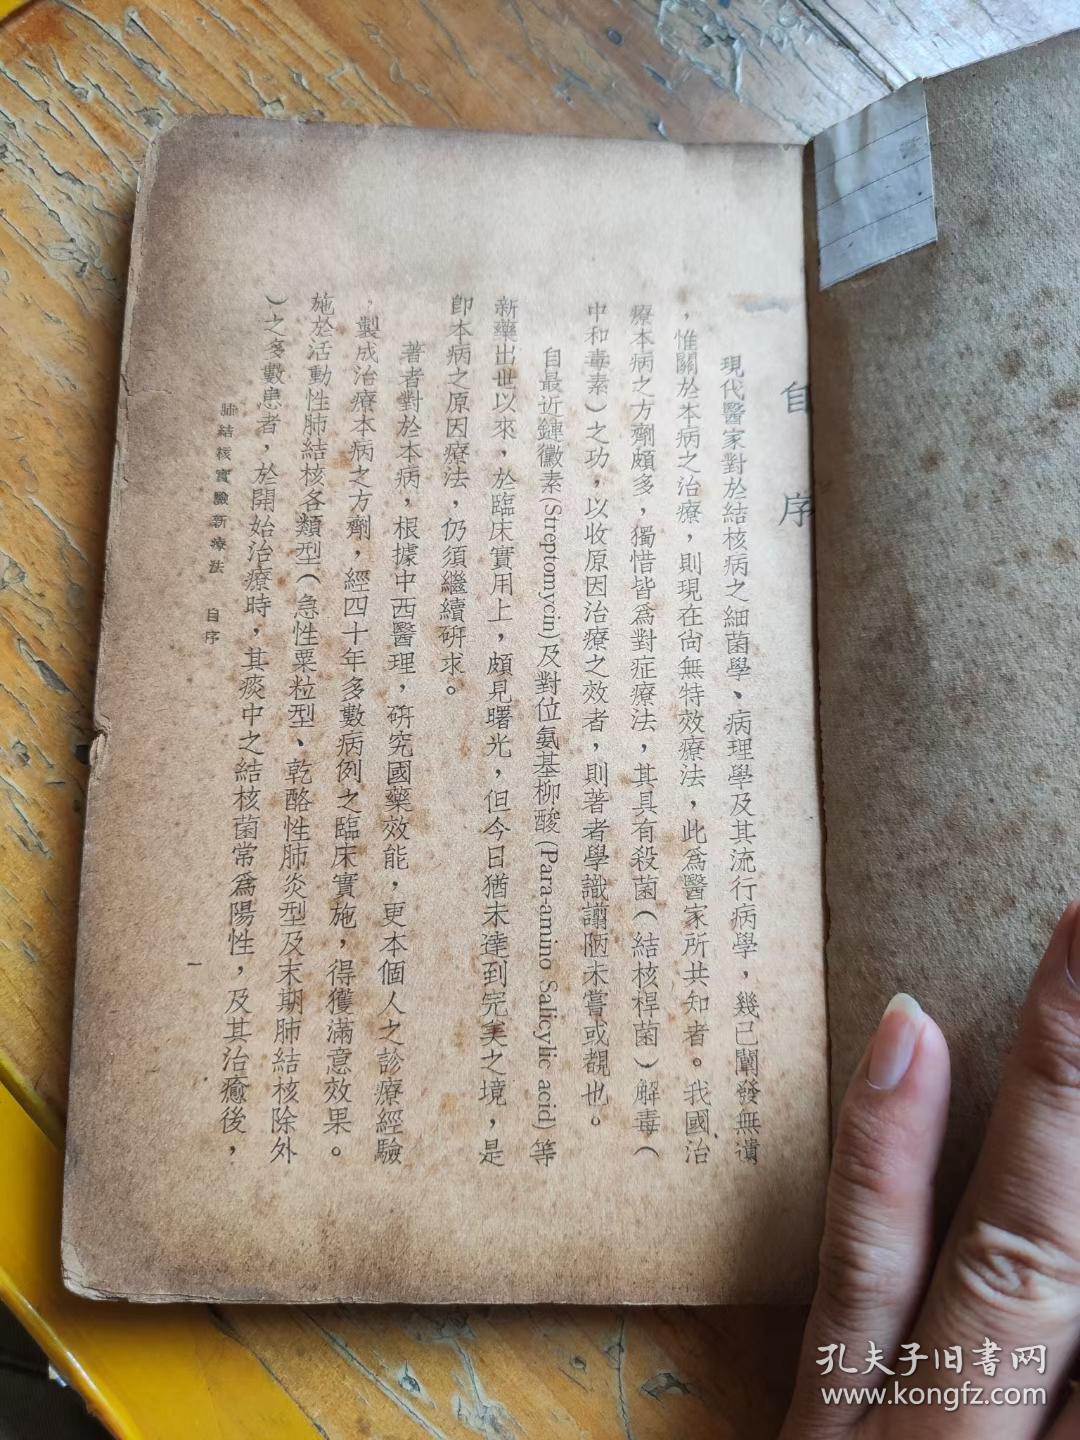 自序
現代醫家對於結核病之細菌學、病理學及其流行病學，幾已闡發無遺
，惟關於本病之治療，則現在尙無特效療法，此爲醫家所共知者。我國治
療本病之方劑頗多，獨惜皆爲對症療法，其具有殺菌（結核桿菌）解毒（
中和毒素）之功，以收原因治療之效者，則著者學識譾陋未嘗或覩也。
自最近鏈黴素(Streptomycin)及對位氨基柳酸(Para-amino Salicylic acid)等
新藥出世以來，於臨床實用上，頗見曙光，但今日猶未達到完美之境，是
卽本病之原因療法，仍須繼續硏求。
著者對於本病，根據中西醫理，硏究國藥效能，更本個人之診療經驗
，製成治療本病之方劑，經四十年多數病例之臨床實施，得獲滿意效果。
施於活動性肺結核各類型（急性粟粒型、乾酪性肺炎型及末期肺結核除外
）之多數患者，於開始治療時，其痰中之結核菌常爲陽性，及其治癒後，
肺結核實驗新療法　自序
一
孔夫子旧書网
www.kongfz.com